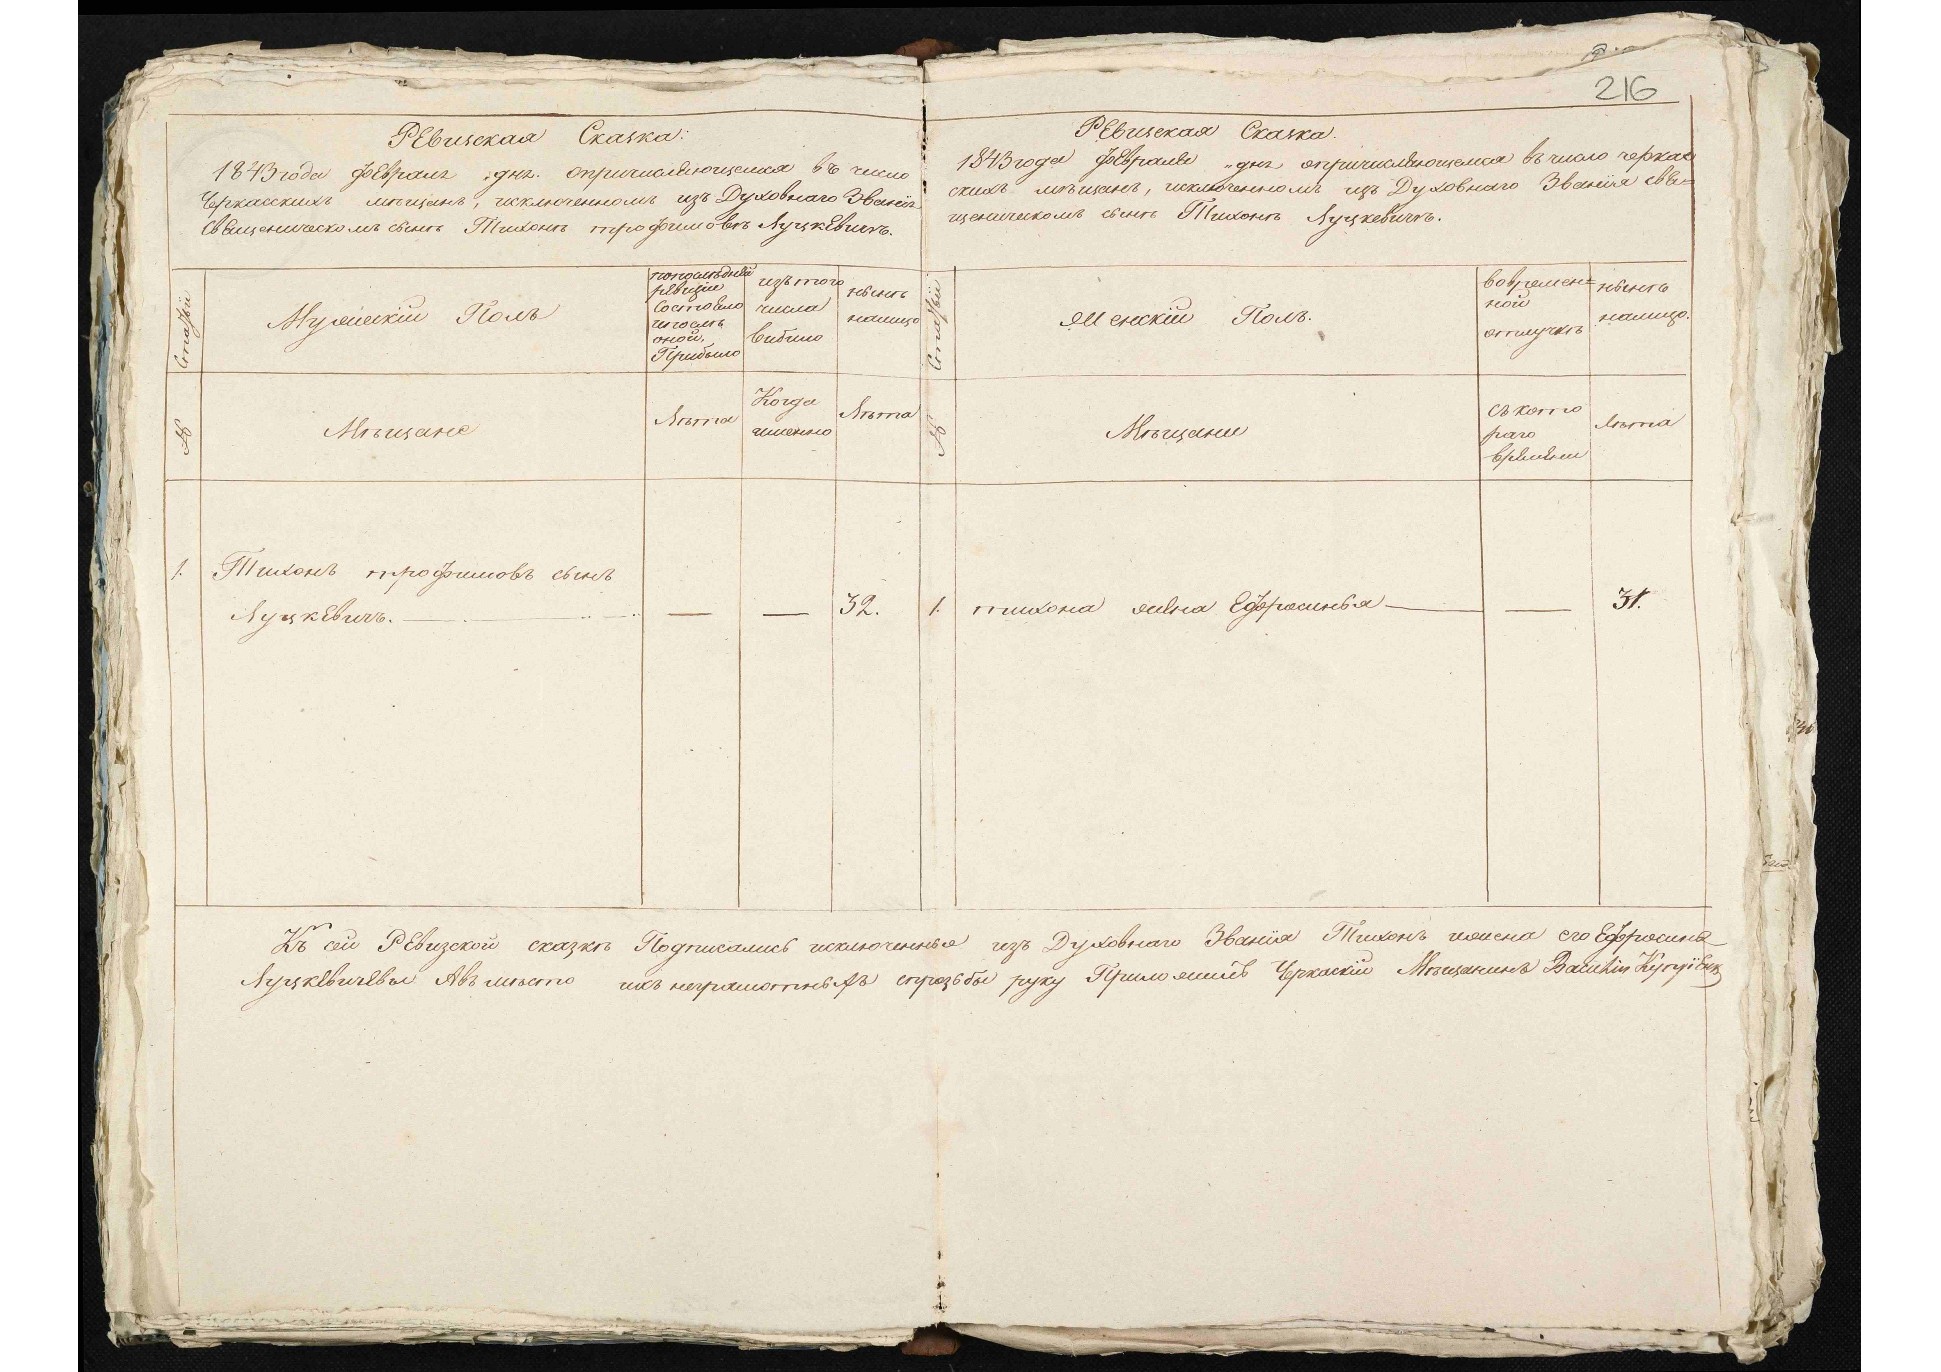 216
Ревизская Сказка:
1843 года февраля дня. опричисляющемся въ число
Черкасскихъ мѣщанъ, исключенномъ изъ Духовнаго Званія
Священическомъ сынѣ Тихонѣ трофимовѣ Луцкевичѣ.
Статьи
Мужескій Полъ
попослѣдней
ревизіи
Состояло
ипослѣ
оной,
Прибыло
изътого
числа
выбыло
нынѣ
налицо
№
Мѣщане
Лѣта
Когда
именно
Лѣта
1. Тихонъ трофимовъ сынъ
Луцкевичъ. — — — 32.
Ревизская Сказка.
1843 года февраля „ дня опричисляющемся въ число черкас
скихъ мѣщанъ, исключенномъ изъ Духовнаго Званія свя=
щеническомъ сынѣ Тихонѣ Луцкевичѣ.
Статьи
Женскій Полъ.
вовремен=
ной
отлучкѣ
нынѣ
налицо.
№
Мѣщане
съ кото
раго
времяни
лѣта
1. тихона жена Ефросинья — — 31.
Къ сей Ревизской сказкѣ Подписались исключенныя изъ Духовнаго Званія Тихонъ ижена его Ефросинья
Луцкевичевы Авъ мѣсто ихъ неграмотныхъ спрозьбы руку Приложилъ Черкаскій Мѣщанинъ